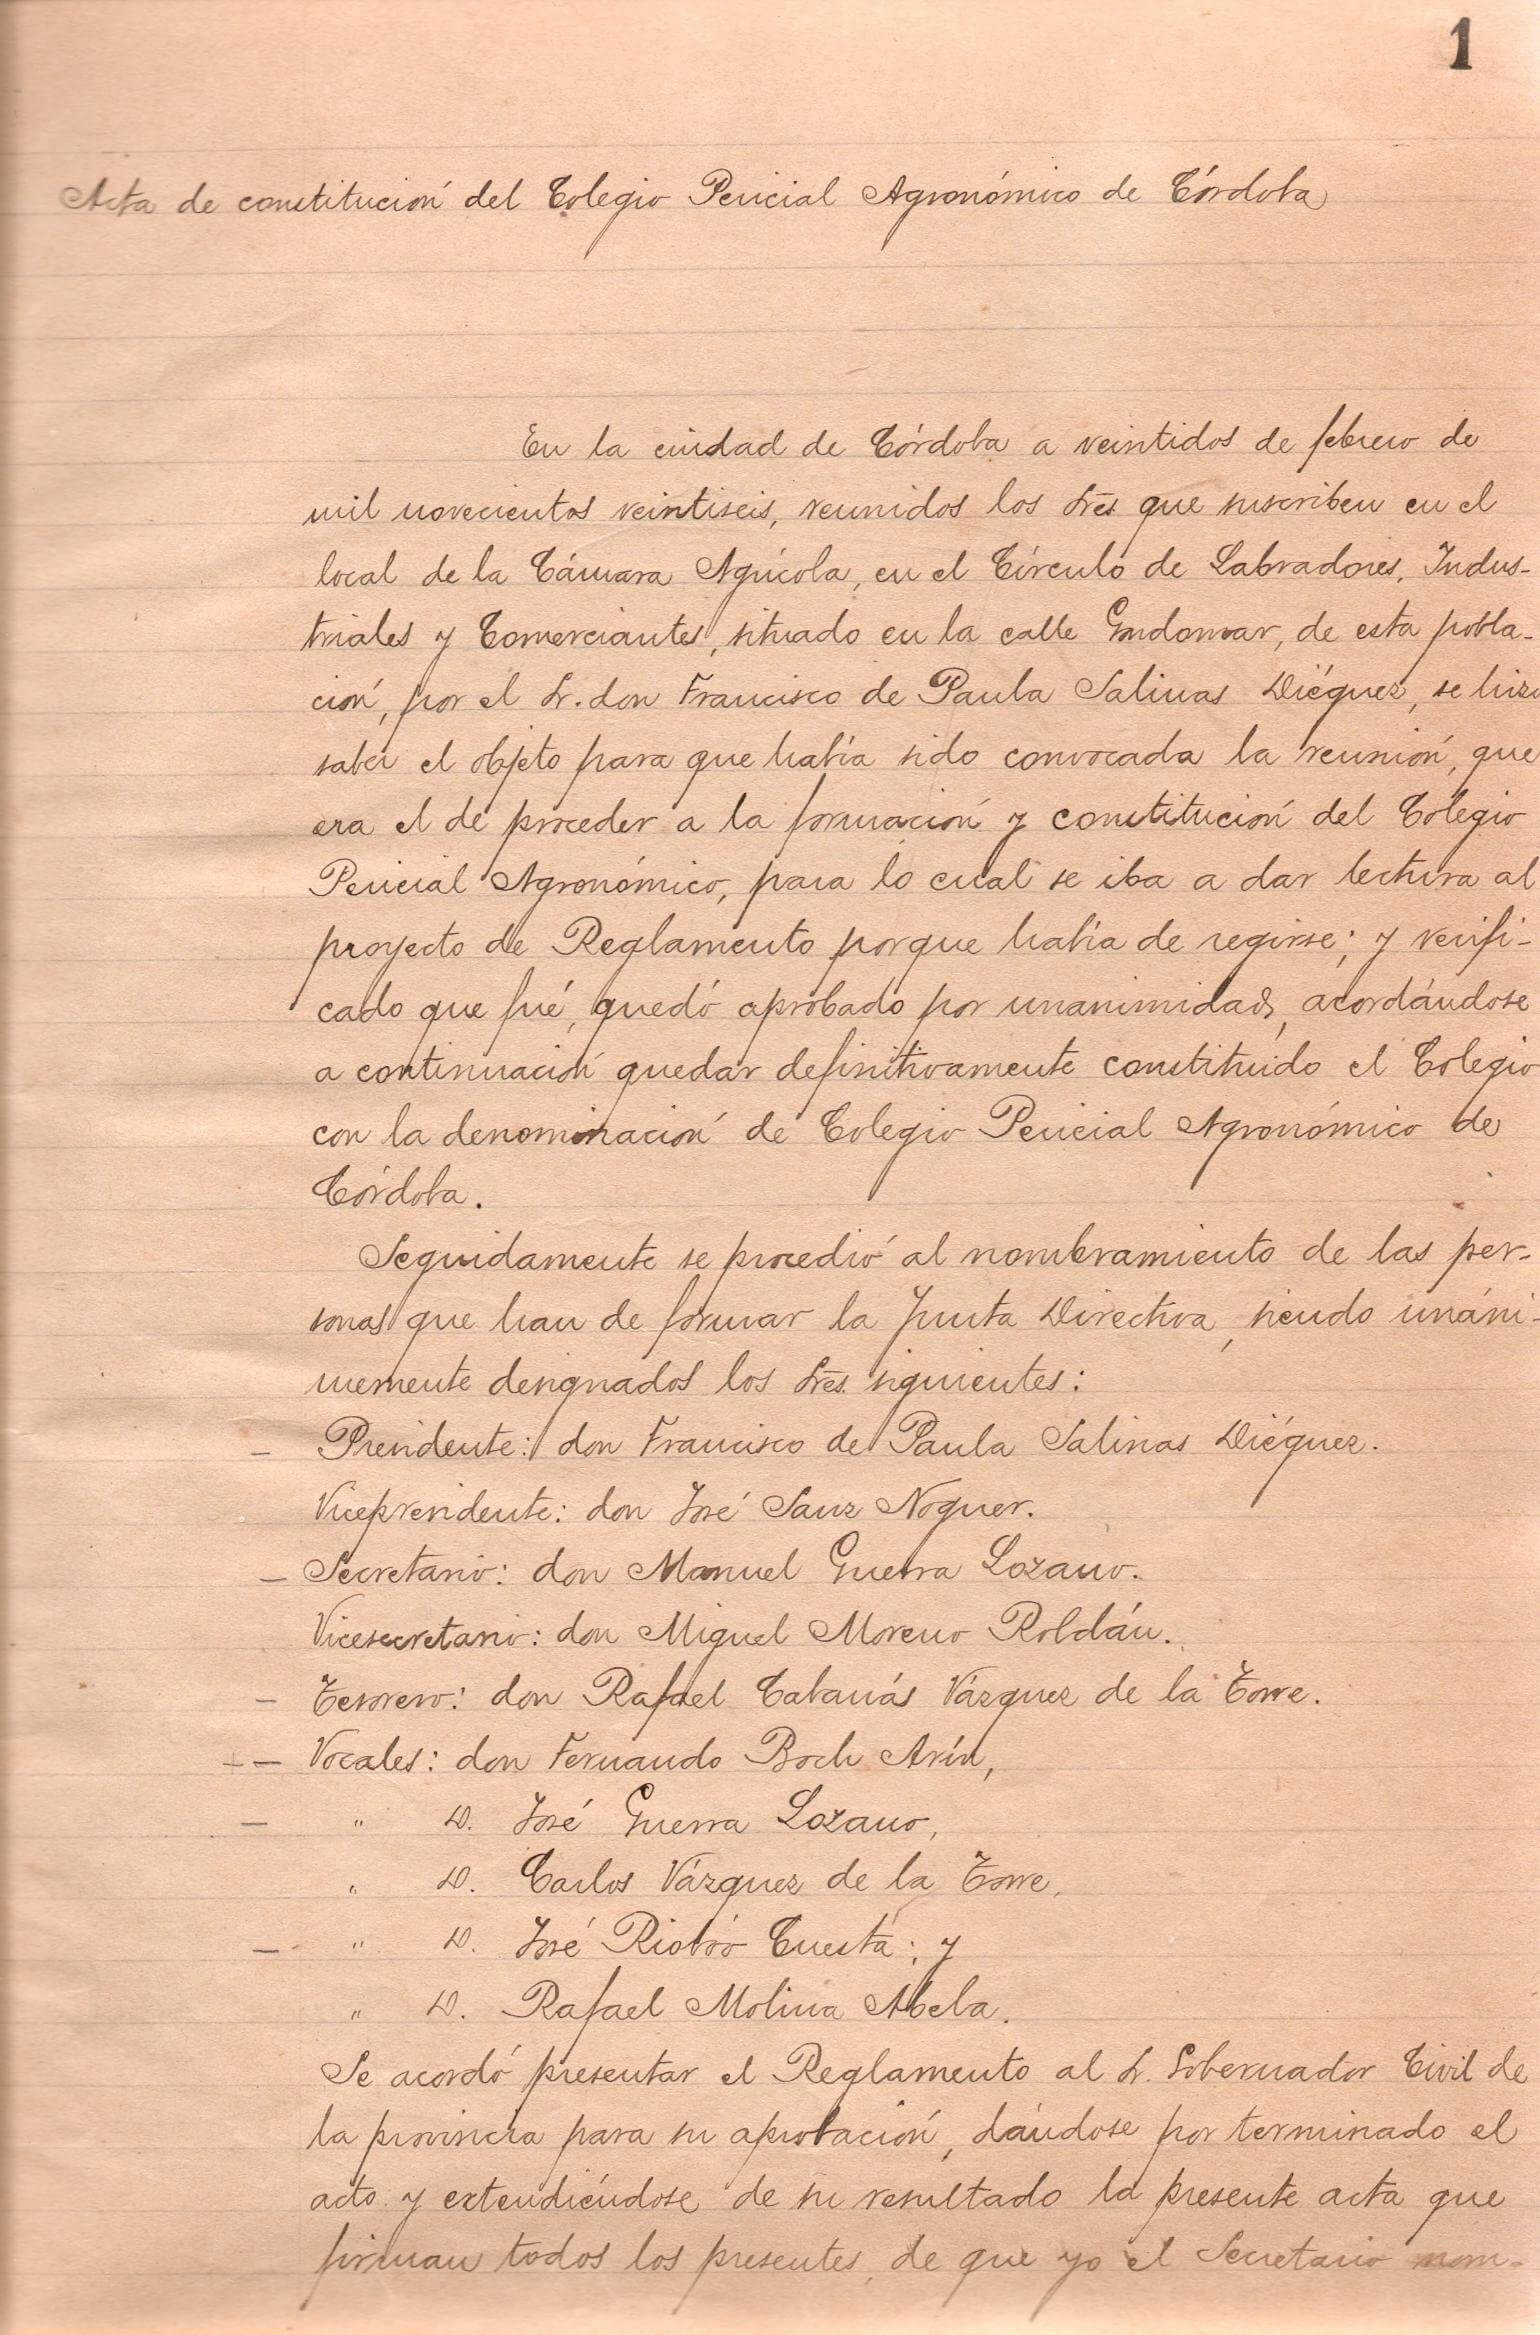 1
Acta de constitución del Colegio Pericial Agronómico de Córdoba
En la ciudad de Córdoba a veintidos de febrero de
mil novecientos veintiseis, reunidos los Sres que suscriben en el
local de la Cámara Agrícola, en el Círculo de Labradores, Indus-
triales y Comerciantes, situado en la calle Gudomar, de esta pobla-
ción, por el Sr. don Francisco de Paula Salinas Diéguez, se hizo
saber el objeto para que había sido convocada la reunión, que
era el de proceder a la formación y constitución del Colegio
Pericial Agronómico, para lo cual se iba a dar lectura al
proyecto de Reglamento porque había de regirse; y verifi-
cado que fué, quedó aprobado por unanimidad, acordándose
a continuación quedar definitivamente constituido el Colegio
con la denominación de Colegio Pericial Agronómico de
Córdoba.
Seguidamente se procedió al nombramiento de las per-
sonas que han de formar la Junta Directiva, siendo unáni-
memente designados los Sres. siguientes:
- Presidente: don Francisco de Paula Salinas Diéguez.
Vicepresidente: don José Sanz Noguer.
- Secretario: don Manuel Guerra Lozano.
Vicesecretario: don Miguel Moreno Roldán.
- Tesorero: don Rafael Cabanás Vázquez de la Torre.
+ - Vocales: don Fernando Boch Arín,
- " D. José Guerra Lozano,
" D. Carlos Vázquez de la Torre,
- " D. José Riobóo Cuesta; y
" D. Rafael Molina Abela.
Se acordó presentar el Reglamento al Sr. Gobernador Civil de
la provincia para su aprobación, dándose por terminado el
acto y extendiéndose de su resultado la presente acta que
firman todos los presentes, de que yo el Secretario nom-